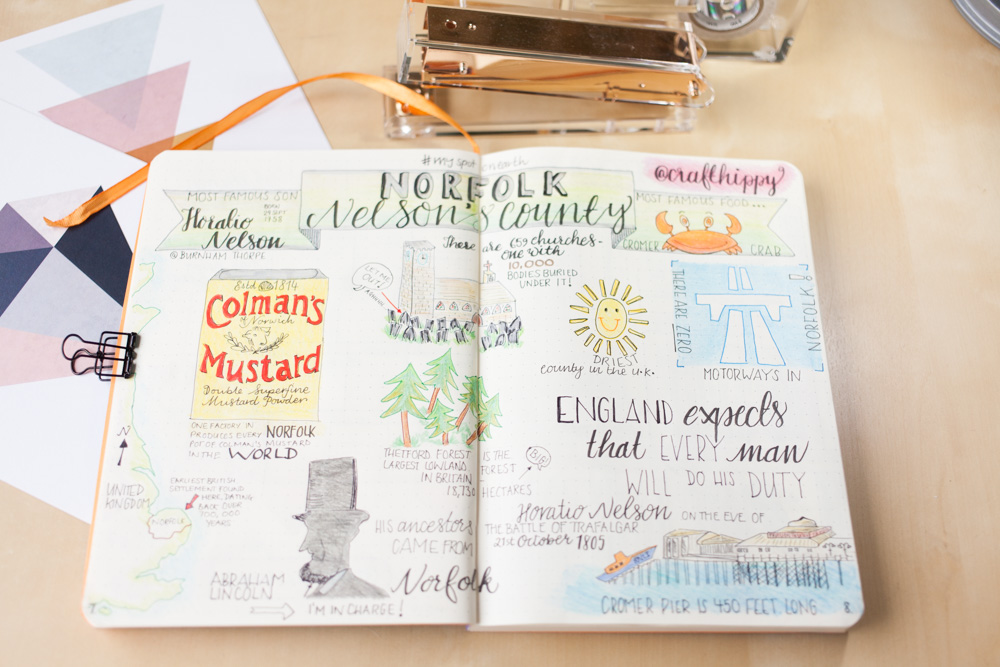 #my spot on earth
@crafthippy
NORFOLK
Nelson's county
MOST FAMOUS SON
Horatio
Nelson
BORN
29 SEPT
1758
@ BURNHAM THORPE
MOST FAMOUS FOOD...
CROMER CRAB
There are 659 churches -
one with
10,000
BODIES BURIED
UNDER IT!
LET ME
OUT!
Estd 1814
Colman's
of Norwich
Mustard
Double Superfine
Mustard Powder
ONE FACTORY IN NORFOLK
PRODUCES EVERY
POT OF COLMAN'S MUSTARD
IN THE WORLD
DRIEST
county in the u.k.
THERE ARE ZERO
MOTORWAYS IN
NORFOLK
THETFORD FOREST IS THE
LARGEST LOWLAND FOREST
IN BRITAIN
18,730 HECTARES
BIG!
ENGLAND expects
that EVERY man
WILL DO HIS DUTY
Horatio Nelson ON THE EVE OF
THE BATTLE OF TRAFALGAR
21st October 1805
N
UNITED
KINGDOM
NORFOLK
EARLIEST BRITISH
SETTLEMENT FOUND
HERE, DATING
BACK OVER
700,000
YEARS
HIS ancestors
CAME FROM
Norfolk
ABRAHAM
LINCOLN
I'M IN CHARGE!
CROMER PIER IS 450 FEET LONG
7
8